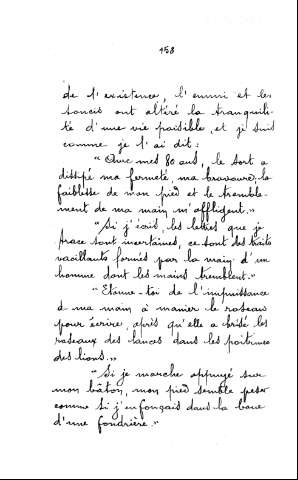 158
de l'existence, l'ennui et les
soucis ont altéré la tranquili-
té d'une vie paisible, et je suis
comme je l'ai dit :
"Avec mes 80 ans, le sort a
dissipé ma fermeté, ma bravoure; la
faiblesse de mon pied et le tremble-
ment de ma main m'affligent."
"Si j'écris, les lettres que je
trace sont incertaines, ce sont des traits
vacillants formés par la main d'un
homme dont les mains tremblent."
"Etonne-toi de l'impuissance
d ma main à manier le roseau
pour écrire, après qu'elle a brisé les
roseaux des lances dans les poitrines
des lions."
"Si je marche appuyé sur
mon bâton, mon pied semble peser
comme si j'enfonçais dans la boue
d'une fondrière."